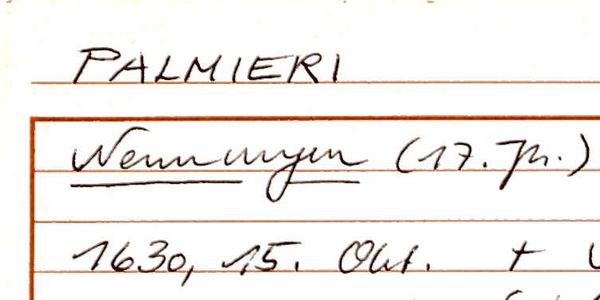 PALMIERI
Nennungen (17. Jh.)
1630, 15. Okt. +